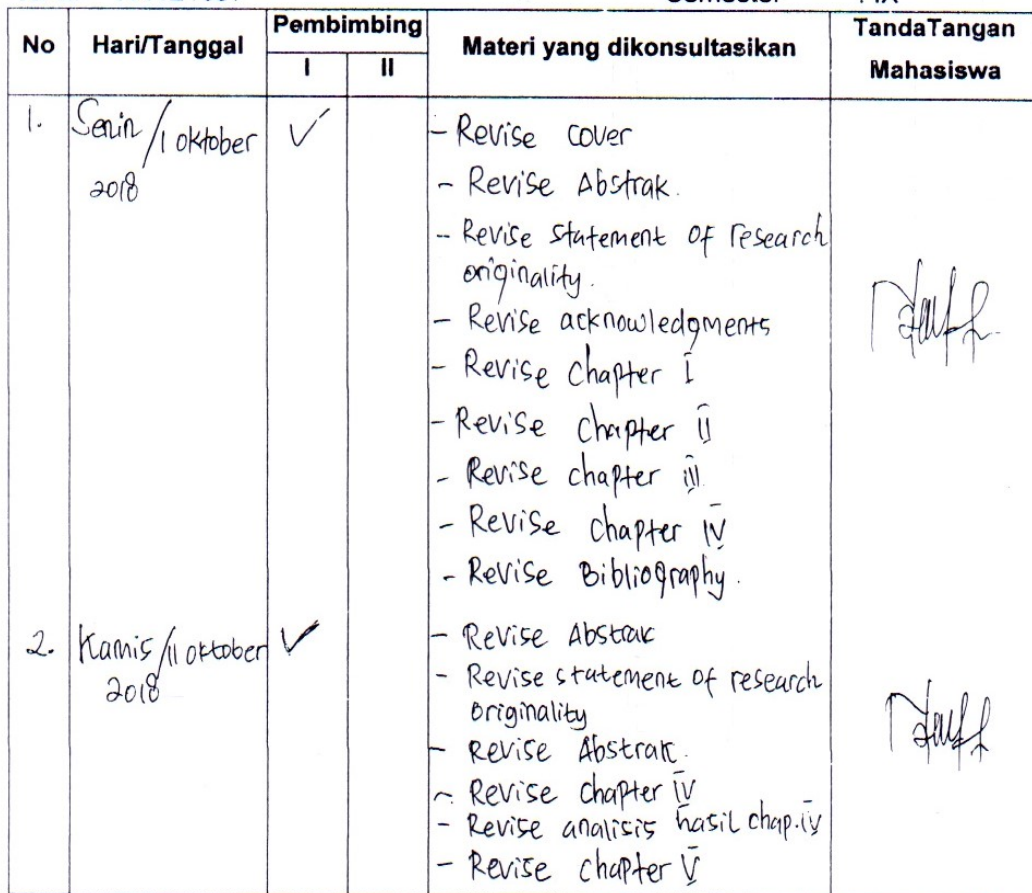 No
Hari/Tanggal
Pembimbing
I
II
Materi yang dikonsultasikan
TandaTangan
Mahasiswa
1.
Senin/1 oktober
2018
✓
- Revise cover
- Revise Abstrak.
- Revise statement of research
originality.
- Revise acknowledgments
- Revise chapter I
- Revise chapter II
- Revise chapter III
- Revise chapter IV
- Revise Bibliography.
2.
Kamis/11 oktober
2018
✓
- Revise Abstrak
- Revise statement of research
originality
- Revise Abstrak.
- Revise chapter IV
- Revise analisis hasil chap.IV
- Revise chapter V